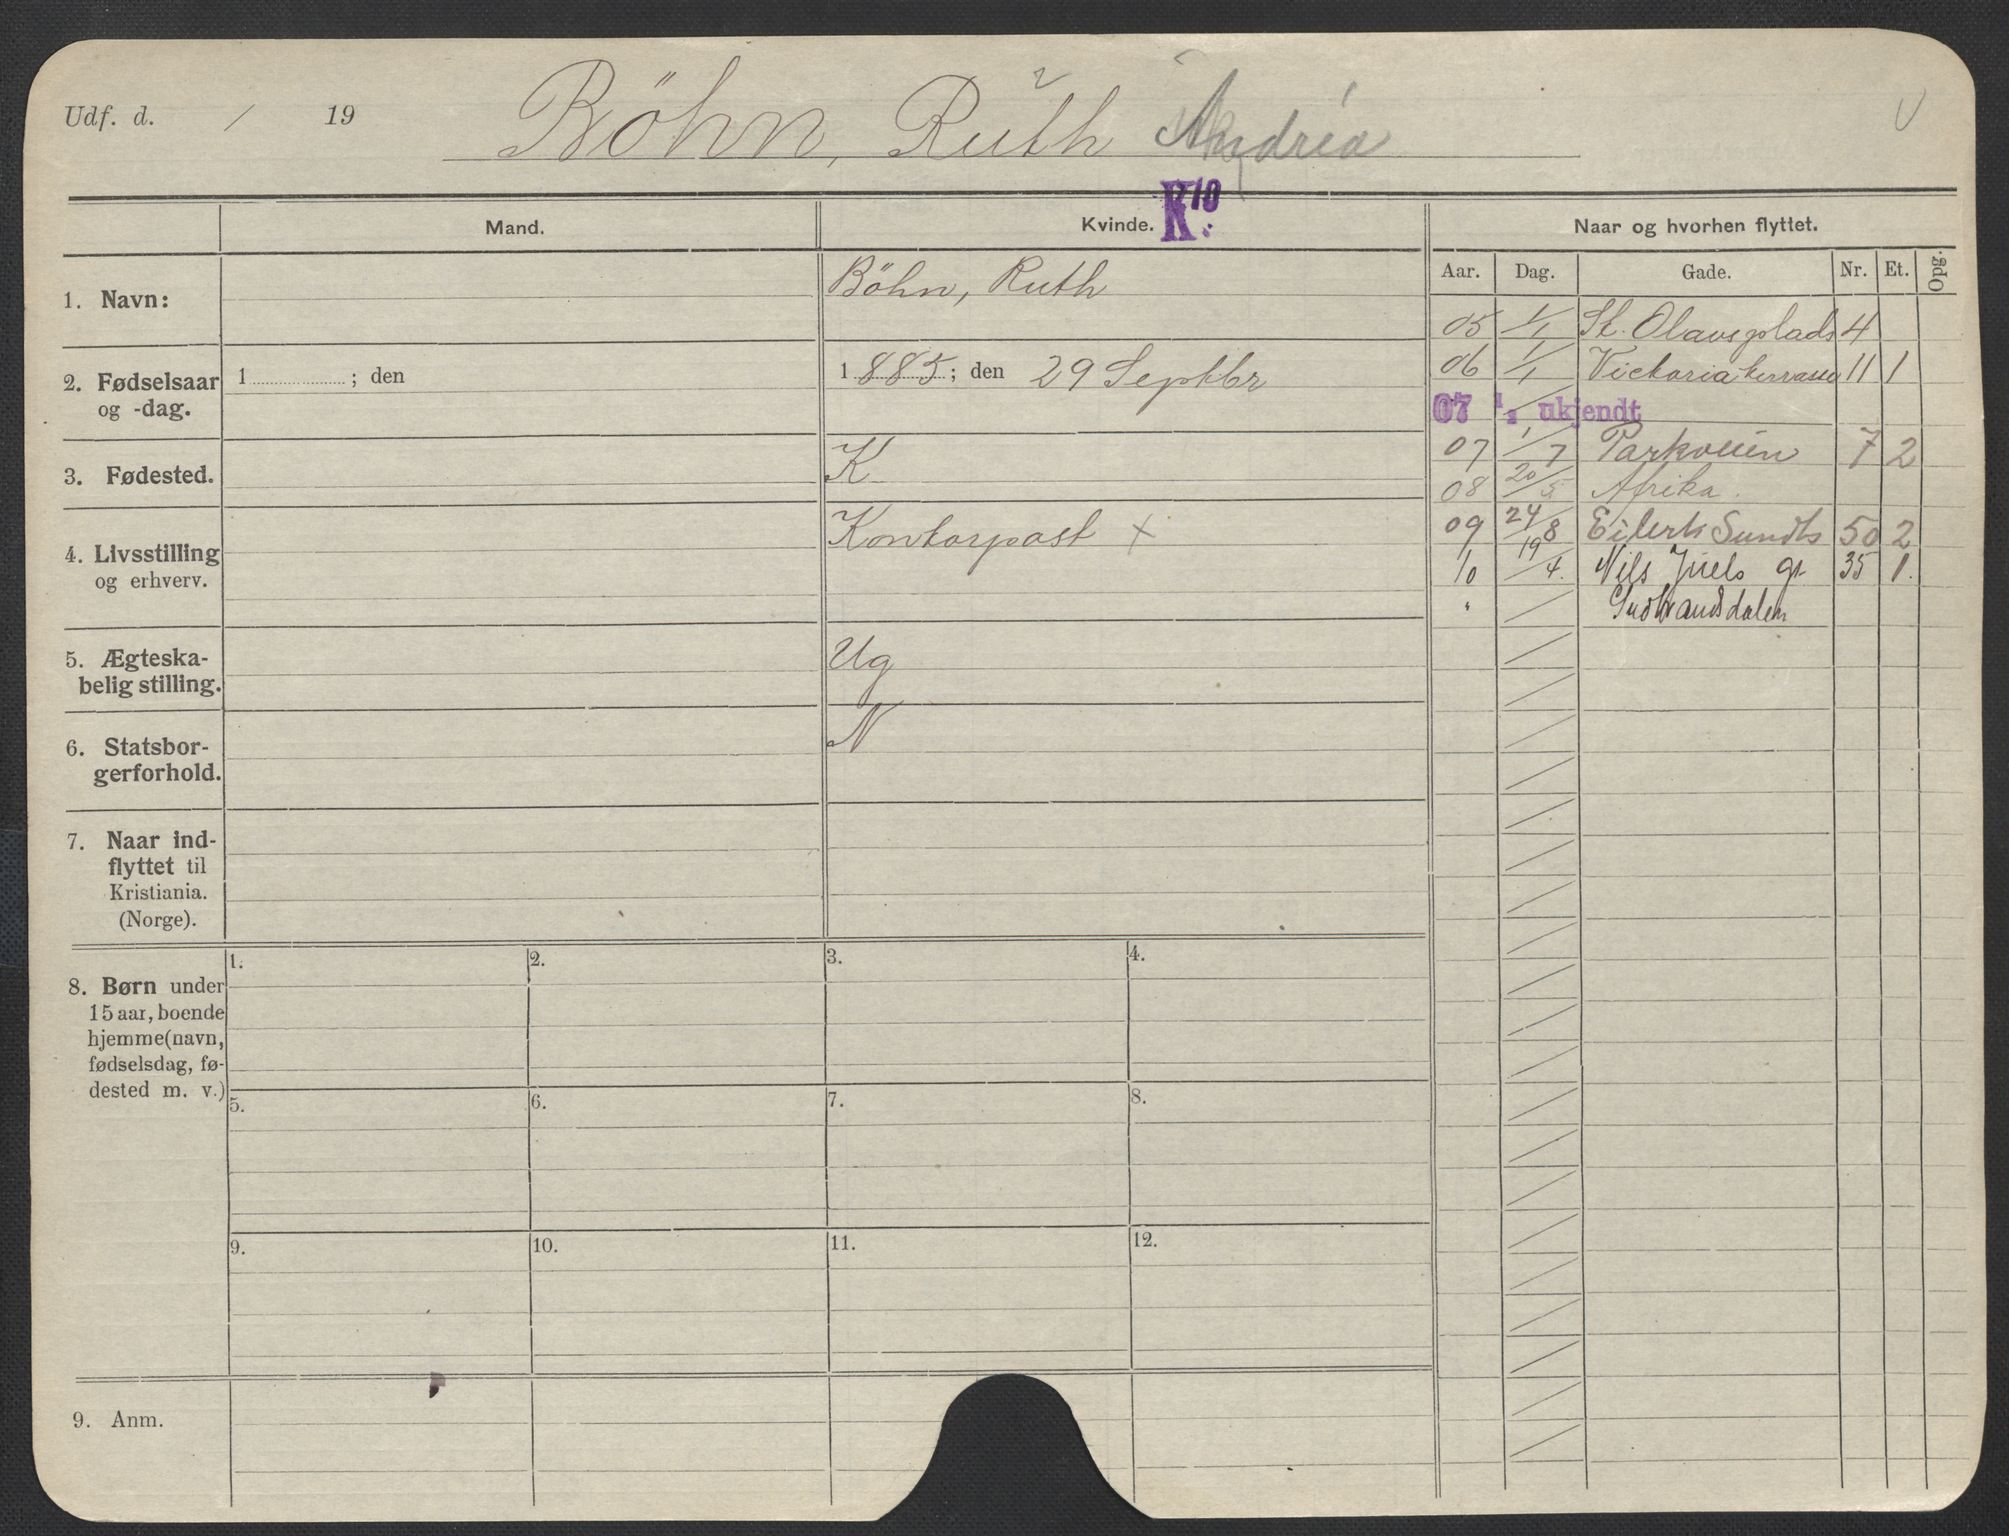 Udf. d. / 19 Böhn, Ruth Andréa
Mand. Kvinde. K10 Naar og hvorhen flyttet.
Aar. Dag. Gade. Nr. Et. Opg.
1. Navn: Böhn, Ruth
05 1/1 St. Olavsplads 4
06 1/1 Victoria terrasse 11 1
2. Fødselsaar
og -dag.
1 ; den
1 885; den 29 Septbr
07 1/1 ukjendt
07 1/7 Parkveien 7 2
3. Fødested. K
08 20/5 Afrika.
4. Livsstilling
og erhverv.
Kontorpost +
09 24/8 Eilert Sundts 50 2
10 19/4. Nils Juels gt 35 1.
" / Gudbrandsdalen
5. Ægteska-
belig stilling.
Ug
6. Statsbor-
gerforhold.
N
7. Naar ind-
flyttet til
Kristiania.
(Norge).
8. Børn under
15 aar, boende
hjemme (navn,
fødselsdag, fø-
dested m. v.)
1. 2. 3. 4.
5. 6. 7. 8.
9. 10. 11. 12.
9. Anm.